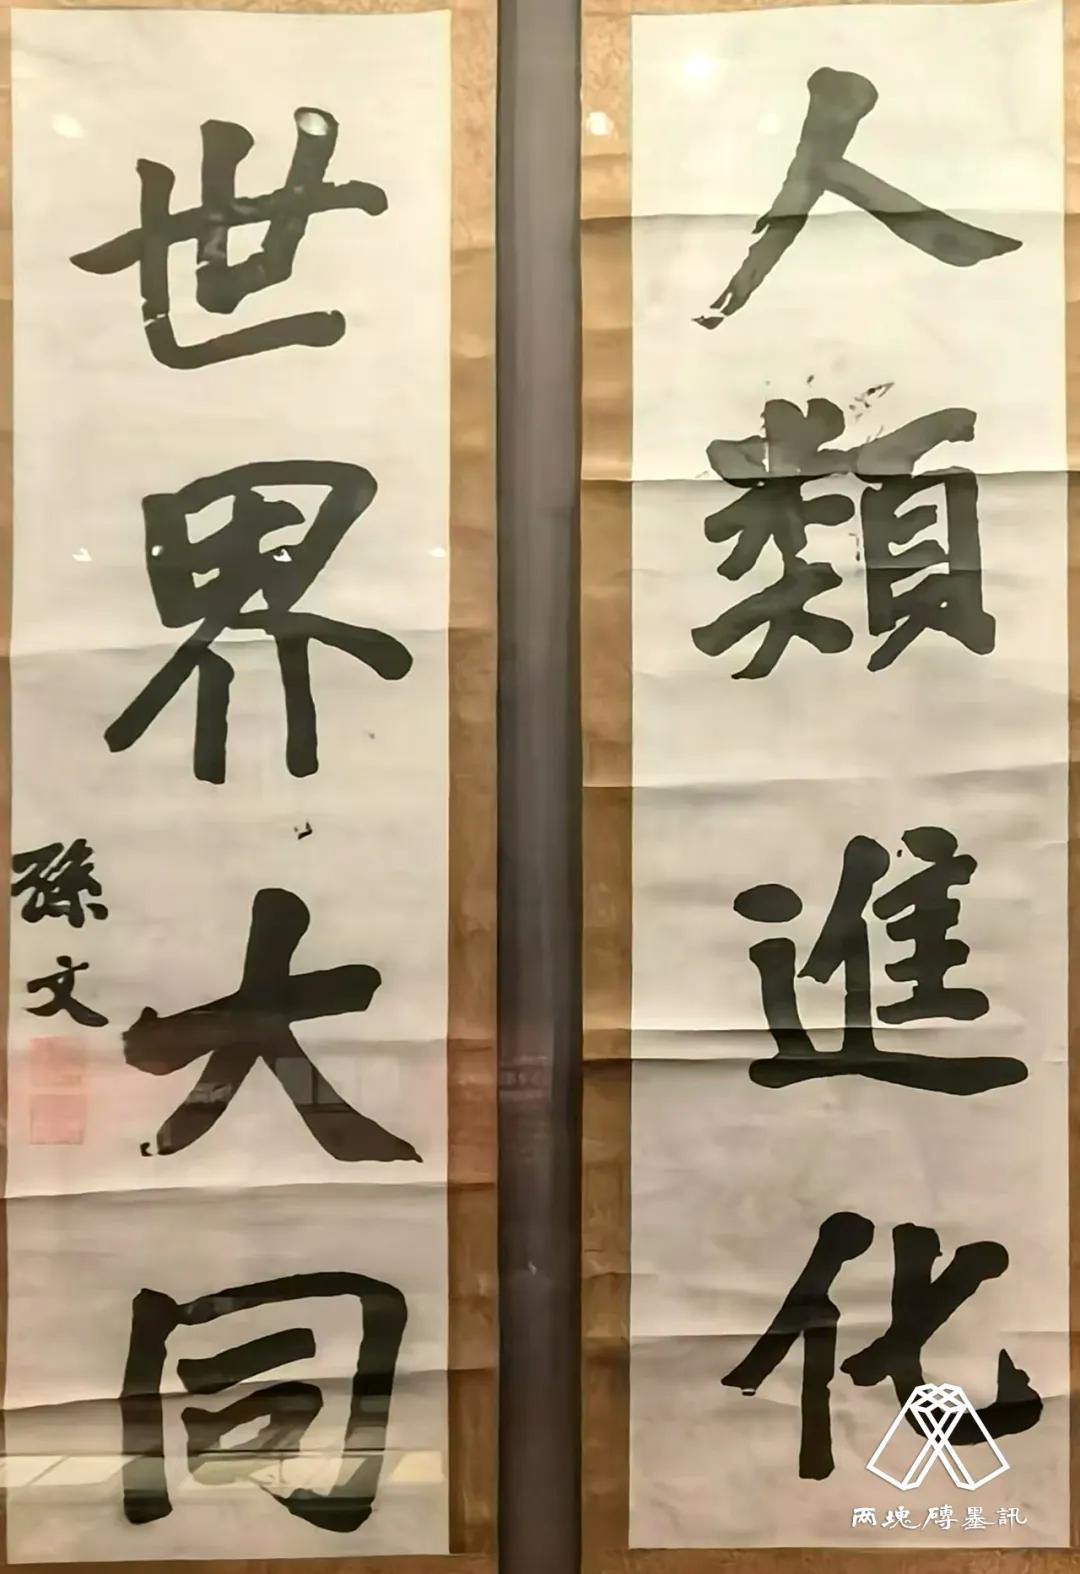 人類進化
世界大同
孫文
两塊磚墨訊